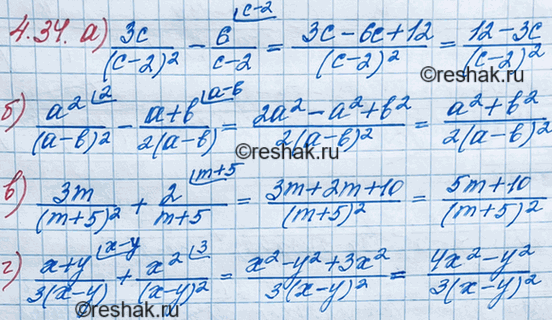 4.34. а) 3c/(c-2)² - 6/(c-2) ⌊c-2 = (3c-6c+12)/(c-2)² = (12-3c)/(c-2)²
©reshak.ru
б) a²/(a-b)² ⌊2 - (a+b)/2(a-b) ⌊a-b = (2a²-a²+b²)/2(a-b)² = (a²+b²)/2(a-b)²
©reshak.ru
в) 3m/(m+5)² + 2/(m+5) ⌊m+5 = (3m+2m+10)/(m+5)² = (5m+10)/(m+5)²
©reshak.ru
г) (x+y)/3(x-y) ⌊x-y + x²/(x-y)² ⌊3 = (x²-y²+3x²)/3(x-y)² = (4x²-y²)/3(x-y)²
©reshak.ru